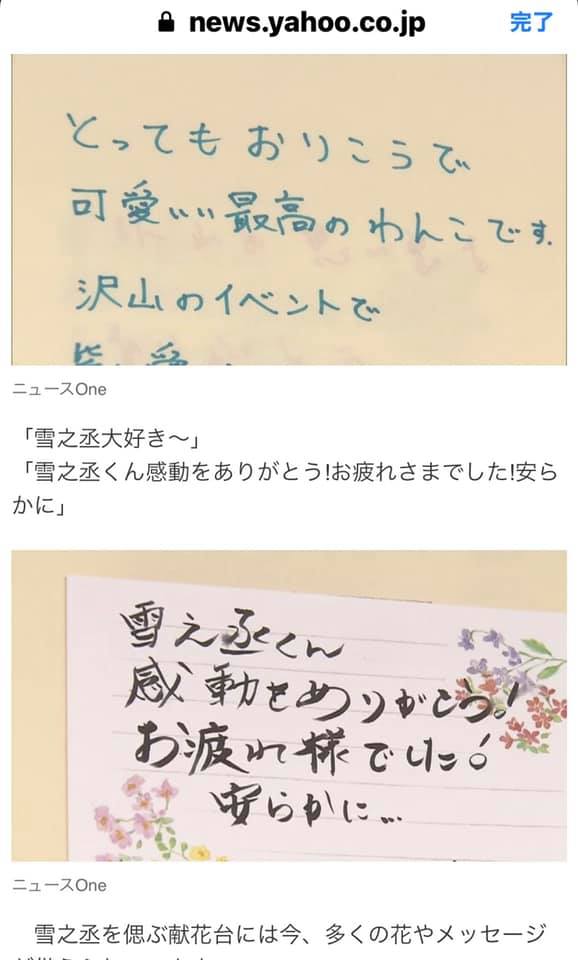 news.yahoo.co.jp
完了
とってもおりこうで
可愛いい最高のわんこです.
沢山のイベントで
ニュースOne
「雪之丞大好き〜」
「雪之丞くん感動をありがとう!お疲れさまでした!安ら
かに」
雪之丞くん
感動をありがとう!
お疲れ様でした!
安らかに...
ニュースOne
雪之丞を偲ぶ献花台には今、多くの花やメッセージ